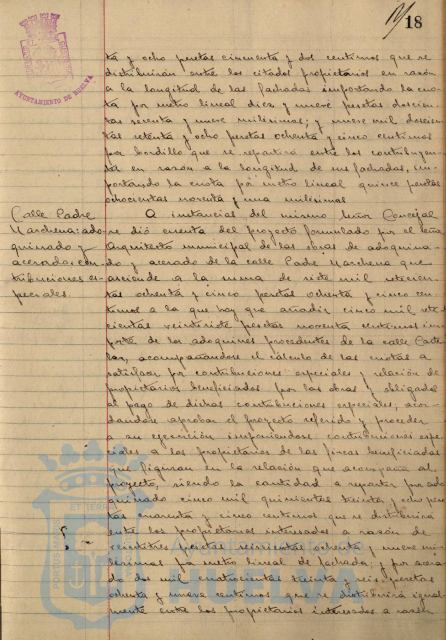 18
AYUNTAMIENTO DE HUELVA
ta y ocho pesetas cincuenta y dos centimos que se
distribuirán entre los citados propietarios en razón
a la longitud de las fachadas importando la cuo-
ta por metro lineal diez y nueve pesetas doscien-
tas sesenta y nueve milésimas; y nueve mil doscien-
tas setenta y ocho pesetas ochenta y cinco centimos
por bordillo que se repartirá entre los contribuyen-
tes en razón a la longitud de sus fachadas, im-
portando la cuota por metro lineal quince pesetas
ochocientas noventa y una milésimas
Calle Padre
Marchena: ado-
quinado y
acerado, con-
tribuciones es-
peciales.
A instancias del mismo Señor Concejal
se dió cuenta del proyecto formulado por el Señor
Arquitecto municipal de las obras de adoquina-
do y acerado de la calle Padre Marchena que
asciende a la suma de siete mil setecien-
tas ochenta y cinco pesetas ochenta y cinco cen-
timos a la que hay que añadir cinco mil
cientas veintisiete pesetas noventa centimos im-
porte de los adoquines procedentes de la calle Caste-
lar, acompañandose el cálculo de las cuotas a
satisfacer por contribuciones especiales y relación de
propietarios beneficiados por las obras y obligados
al pago de dichas contribuciones especiales, acor-
dandose aprobar el proyecto referido y proceder
a su ejecución imponiendose contribuciones espe-
ciales a los propietarios de las fincas beneficiadas
que figuran en la relación que acompaña al
proyecto, siendo la cantidad a repartir por ado-
quinado cinco mil quinientas treinta y ocho pese-
tas cuarenta y cinco centimos que se distribuirá
entre los propietarios interesados a razón de
veintitres pesetas seiscientas ochenta y nueve mi-
lésimas por metro lineal de fachada; y por acera-
do dos mil cuatrocientas treinta y seis pesetas
ochenta y nueve centimos que se distribuirá igual-
mente entre los propietarios interesados a razón